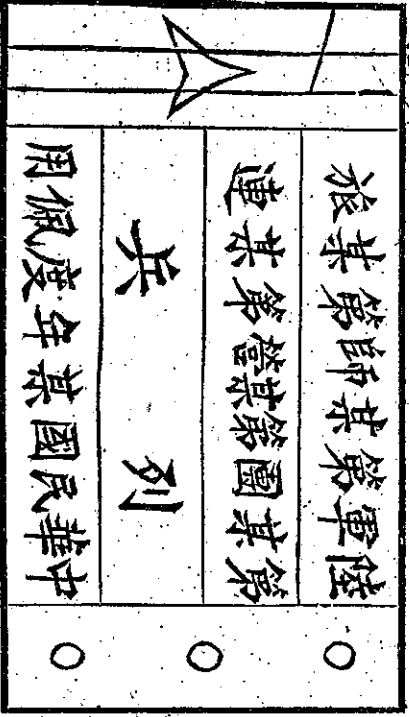 陸軍第某師第某旅
第某團第某營第某連
列兵
中華民國某年度佩用